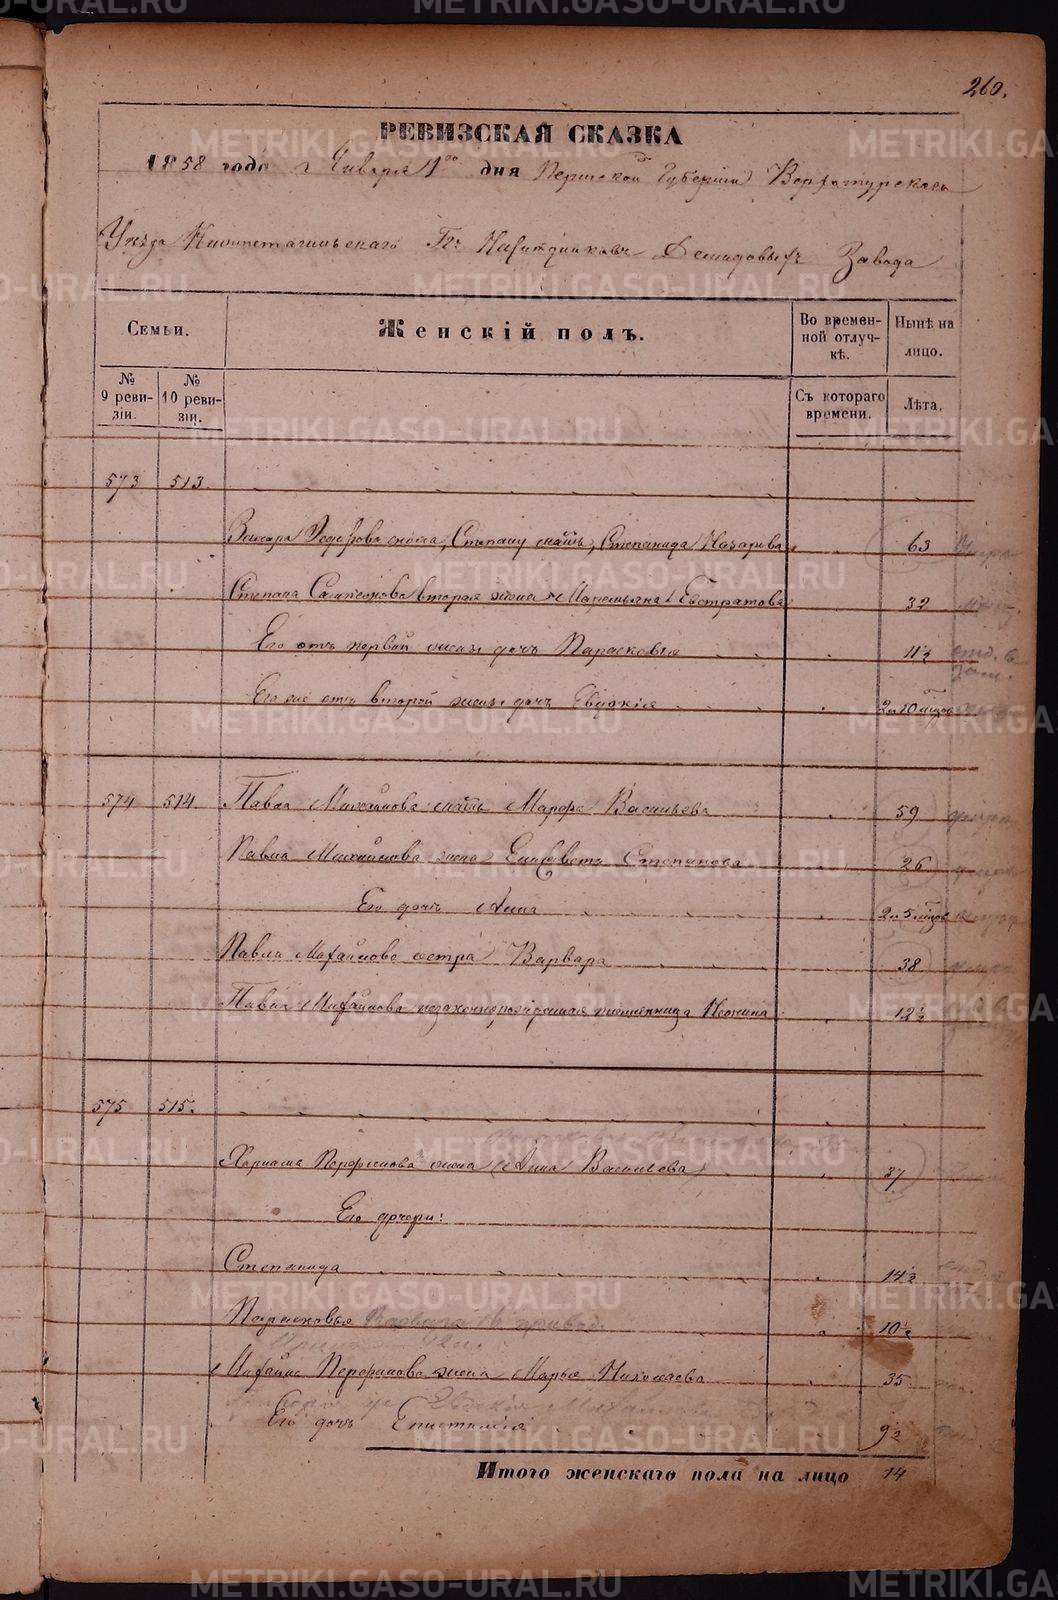 260.
РЕВИЗСКАЯ СКАЗКА
1858 года Января 1го дня Пермской Губернии Верхотурскаго
Уѣзда Нижнетагильскаго Гг. Наслѣдниковъ Демидовыхъ Завода
Семьи.
Женскій полъ.
Во временной отлучкѣ.
Нынѣ на лицо.
№ 9 ревизіи.
№ 10 ревизіи.
Съ котораго времени.
Лѣта.
573 513.
Федорова жена, Степану мать, Степанида Назарова 63
Степана вторая жена Евстратова 32
Его отъ первой жены дочь Парасковья 11½
Его же отъ второй жены дочь Евдокія 2 и 10 мѣсцов
574 514. Павла Михайлова мать Марфа Васильева 59
Павла Михайлова жена Елисаветъ Степанова 26
Его дочь Анна 2 и 5 мѣсцов
Павла Михайлова сестра Варвара 38
Павла Михайлова незаконнорожденная племянница 12½
575 515.
Перфилова жена Анна Васильева 37
Его дочери:
Степанида 14½
Парасковья 10½
Михайла Перфилова жена Марья Николаева 35
Его дочь Епистимія 9½
Итого женскаго пола на лицо 14
METRIKI.GASO-URAL.RU